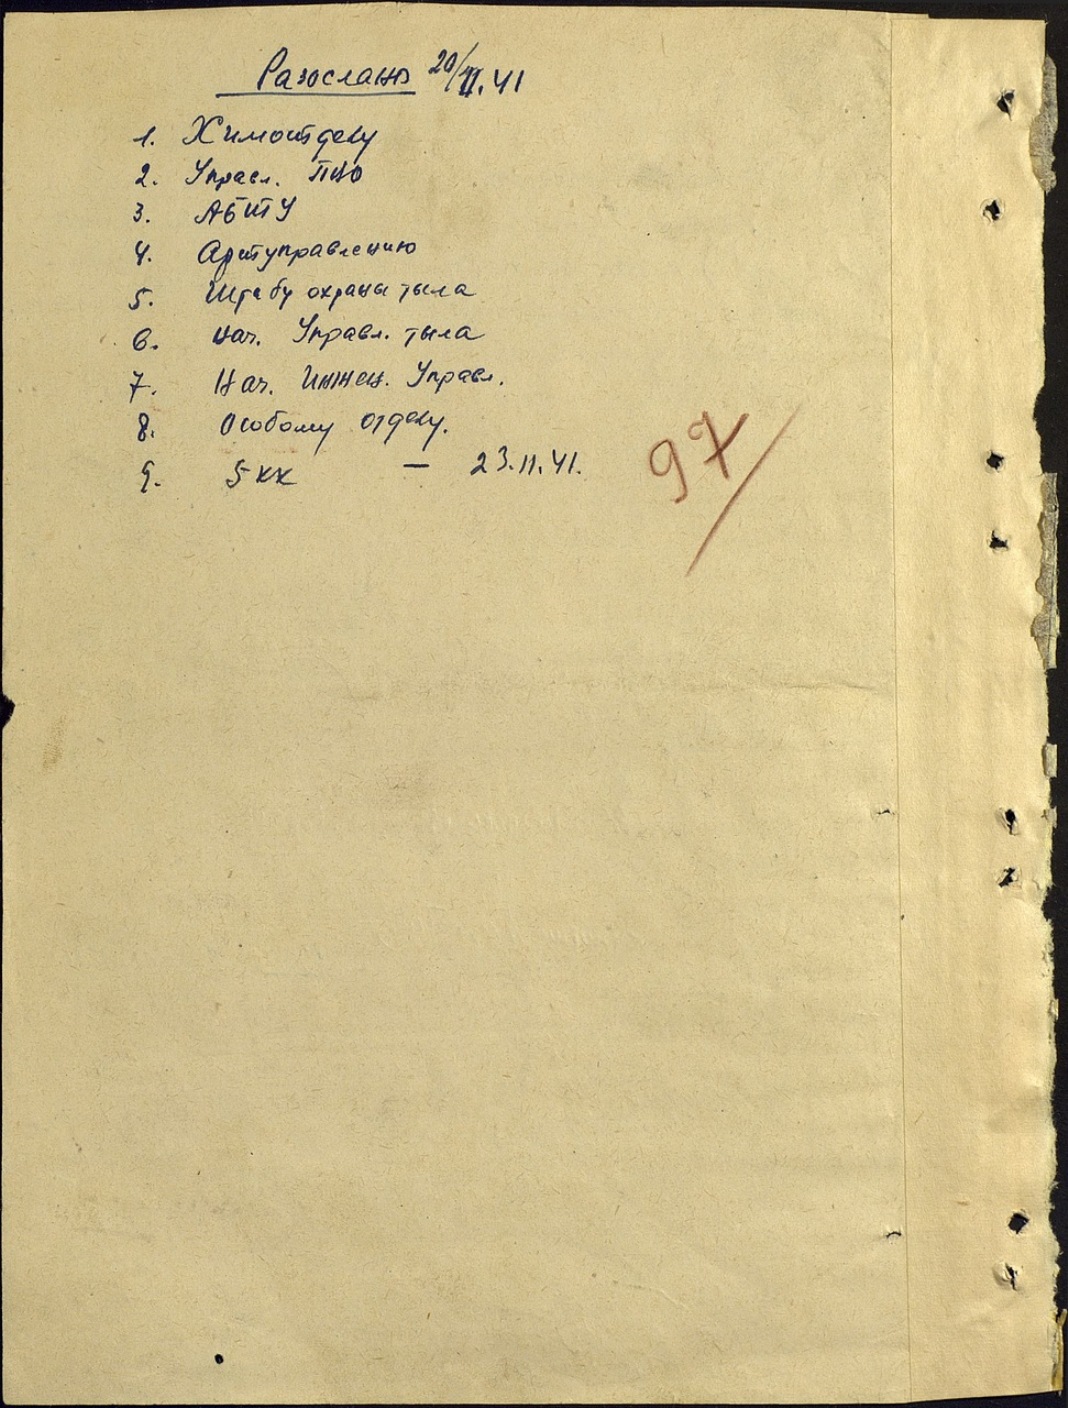 Разослано 20/II.41
1. Химотделу
2. Управл. ПВО
3. АБТУ
4. Артуправлению
5. Штабу охраны тыла
6. Нач. Управл. тыла
7. Нач. Инжен. Управл.
8. Особому отделу.
9. 5 кк — 23.11.41.
97